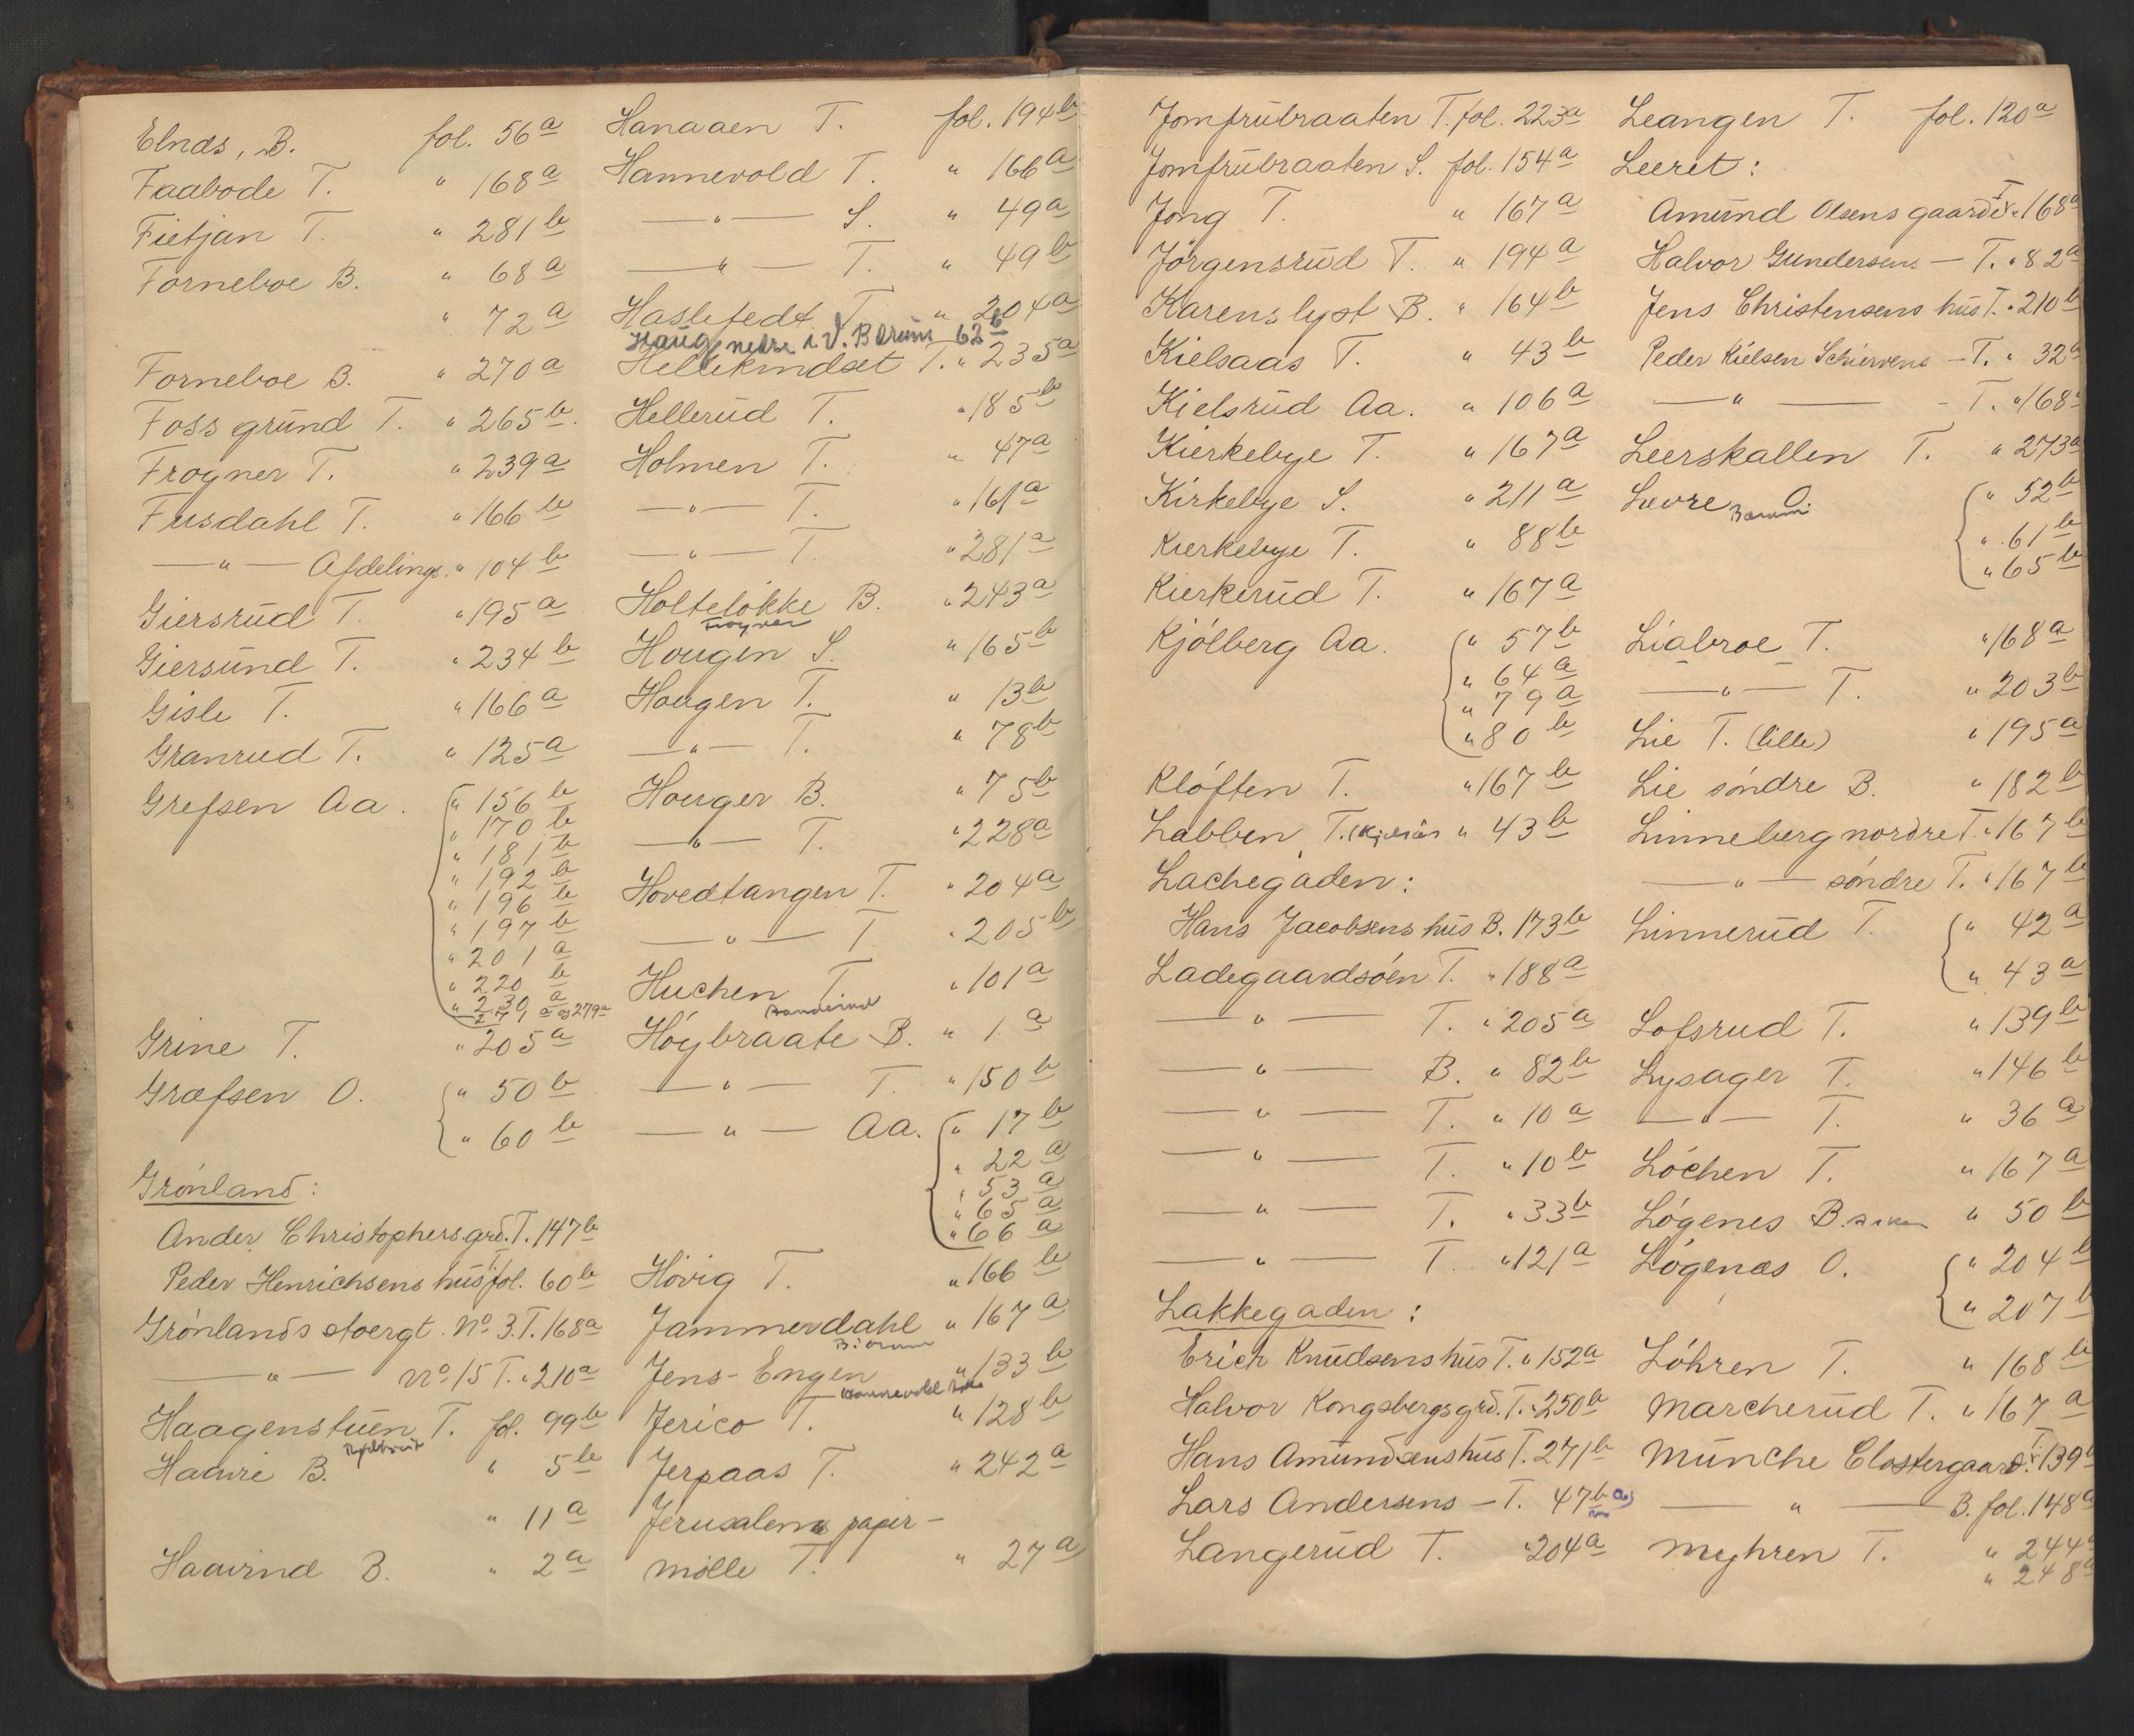 Elnæs, B. fol. 56a
Faabode T. " 168a
Fietjan T. " 281b
Forneboe B. " 68a
" 72a
Forneboe B. " 270a
Foss grund T. " 265b
Frogner T. " 239a
Fusdahl T. " 166b
— " — Afdelings. " 104b
Giersrud T. " 195a
Giersund T. " 234b
Gisle T. " 166a
Granrud T. " 125a
Grefsen Aa. " 156b
" 170b
" 181b
" 192b
" 196b
" 197b
" 201a
" 220b
" 230a
271a og 279a
Grine T. " 205a
Græfsen O. " 50b
" 60b
Grönland:
Ander Christophers. grd. T. 147b
Peder Henrichsens hus T. fol. 60b
Grönlands Stoergt. No. 3. T. 168a
— " — No. 15 T. " 210a
Haagenstuen T. fol. 99b
Haavie B. " 5b
" 11a
Haavind B. " 2a
Hanaaen T. fol. 194b
Hannevold T. " 166a
— " — S. " 49a
— " — T. " 49b
Haslefedt T. " 204a
Haug, nedre i V. Bærum 62b
Hellekindset T. " 235a
Hellerud T. " 185b
Holmen T. " 47a
— " — T. " 161a
— " — T. " 281a
Holtelökke B. " 243a
Frogner
Hougen S. " 165b
Hougen T. " 13b
— " — T. " 78b
Houger B. " 75b
— " — T. " 228a
Hovedtangen T. " 204a
— " — T " 205b
Huchen T. " 101a
Höybraate B. " 1a
— " — T. " 150b
— " — Aa. " 17b
" 22a
" 53a
" 65a
" 66a
Hövig T. " 166b
Jammerdahl " 167a
Jens-Engen " 133b
Jerico T. " 128b
Jerpaas T. " 242a
Jerusalems papir-
mölle T. " 27a
Jomfrubraaten T. fol. 223a
Jomfrubraaten S. fol. 154a
Jong T. " 167a
Jörgensrud T. " 194a
Karenslyst B. " 164b
Kielsaas T. " 43b
Kielsrud Aa. " 106a
Kierkebye T. " 167a
Kirkebye S. " 211a
Kierkebye T. " 88b
Kierkerud T. " 167a
Kjölberg Aa. " 57b
" 64a
" 79a
" 80b
Klöften T. " 167b
Labben T. (Kjelsås " 43b
Lachegaden:
Hans Jacobsens hus B. 173b
Ladegaardsöen T. " 188a
— " — T. " 205a
— " — B. " 82b
— " — T. " 10a
— " — T. " 10b
— " — T. " 33b
— " — T. " 121a
Lakkegaden:
Erich Knudsens hus T. " 152a
Halvor Kongsbergs grd. T. " 250b
Hans Amundsens hus T. 271b
Lars Andersens — T. 47b a)
Langerud T. " 204a
Leangen T. fol. 120a
Leeret:
Amund Olsens gaard T. " 168a
Halvor Gundersens — T. " 82a
Jens Christensens hus T. " 210b
Peder Kielsen Schiervens — T. " 32a
— " — T. " 168
Leerskallen T. " 273a
Lævre O. " 52b
Bærum
" 61b
" 65b
Liabroe T. " 168a
— " — T. " 203b
Lie T. (lille) " 195a
Lie söndre B. " 182b
Linneberg nordre T. " 167b
— " — söndre T. " 167b
Linnerud T. " 42a
" 43a
Lofsrud T. " 139b
Lysager T. " 146b
— " — T. " 36a
Löchen T. " 167a
Lögenes B. Asker " 50b
Lögenæs O. " 204b
" 207b
Löhren T. " 168b
Marcherud T. " 167a
Munche Clostergaard T. " 139
— " — B. fol. 148a
Myhren T. " 244a
" 248a